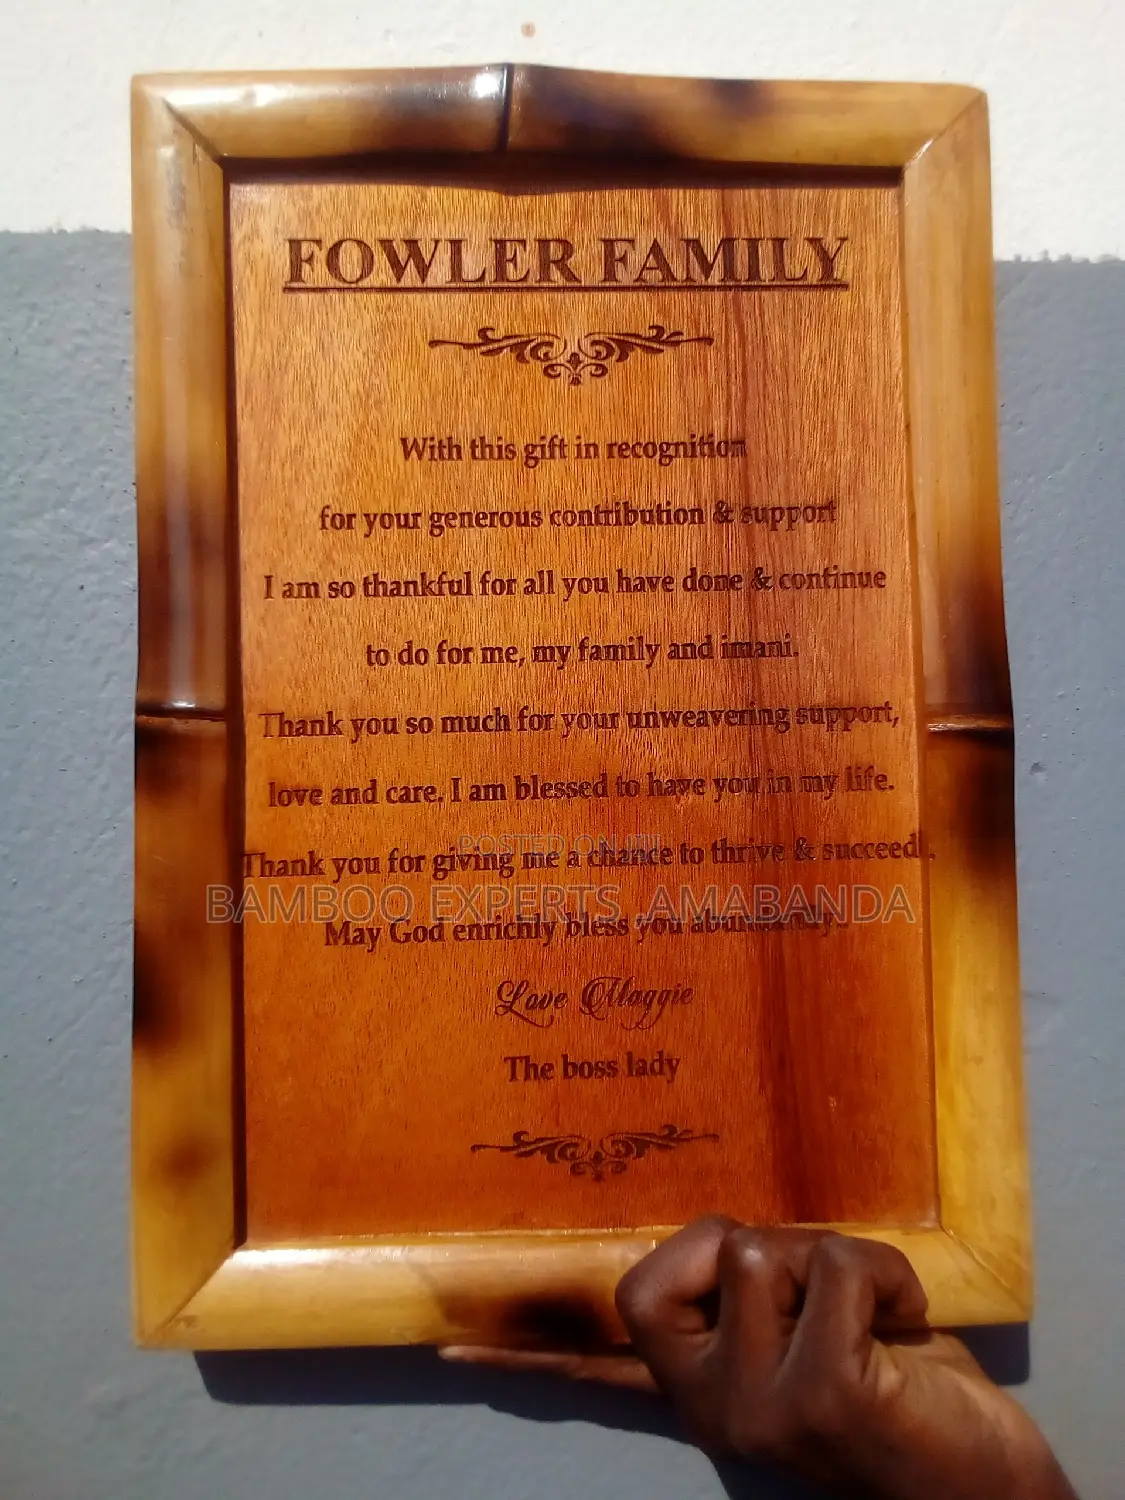 FOWLER FAMILY
With this gift in recognition
for your generous contribution & support
I am so thankful for all you have done & continue
to do for me, my family and imani.
Thank you so much for your unweavering support,
love and care. I am blessed to have you in my life.
POSTED ON JIJI
Thank you for giving me a chance to thrive & succeed .
BAMBOO EXPERTS, AMABANDA
May God enrichly bless you abundantly.
Love Maggie
The boss lady